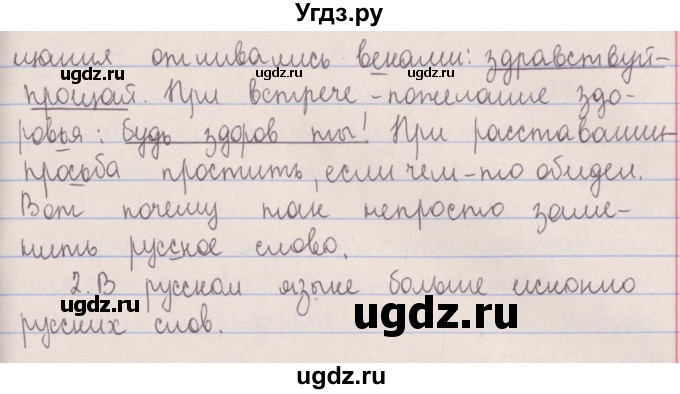 Угдз.ру
щания отливались веками: здравствуй-
прощай. При встрече - пожелание здо-
ровья: будь здоров ты! При расставании-
просьба простить, если чем-то обидел.
Вот почему так непросто заме-
нить русское слово.
2. В русском языке больше исконно
русских слов.
ugdz.ru
ugdz.ru
ugdz.ru
ugdz.ru
ugdz.ru
ugdz.ru
ugdz.ru
ugdz.ru